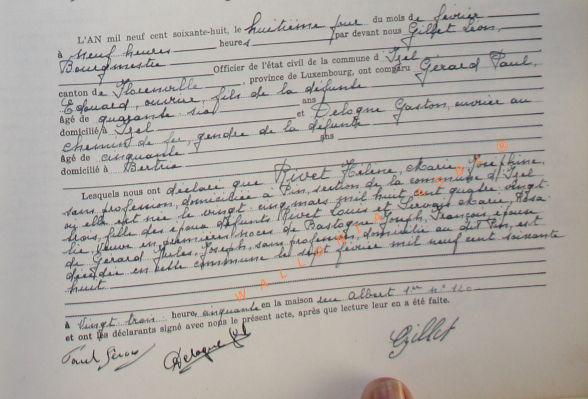 L'AN mil neuf cent soixante-huit, le huitième jour du mois de février
à neuf heures heures par devant nous Gillet Léon,
Bourgmestre Officier de l'état civil de la commune d'Izel
canton de Florenville, province de Luxembourg, ont comparu Gérard Paul,
Edouard, ouvrier, fils de la défunte
âgé de quarante six ans
domicilié à Izel et Delogne Gaston, ouvrier au
chemin de fer, gendre de la défunte
âgé de cinquante ans
domicilié à Bertrix
Lesquels nous ont déclaré que Rivet Hélène, Marie, Joséphine,
sans profession, domiciliée à Pin, section de la commune d'Izel
où elle est née le vingt-cinq mars mil huit cent quatre vingt
trois, fille des époux défunts Rivet Louis et Servais Marie, Rosa
veuve en premières noces de Bastogne Joseph, François, épouse
de Gérard Jules, Joseph, sans profession, domicilié au dit Pin, est
décédée en cette commune le sept février mil neuf cent soixante
huit
à vingt trois heures cinquante en la maison rue Albert 1er n°
et ont les déclarants signé avec nous le présent acte, après que lecture leur en a été faite.
Paul Gérard Delogne Gillet
WALLONIA